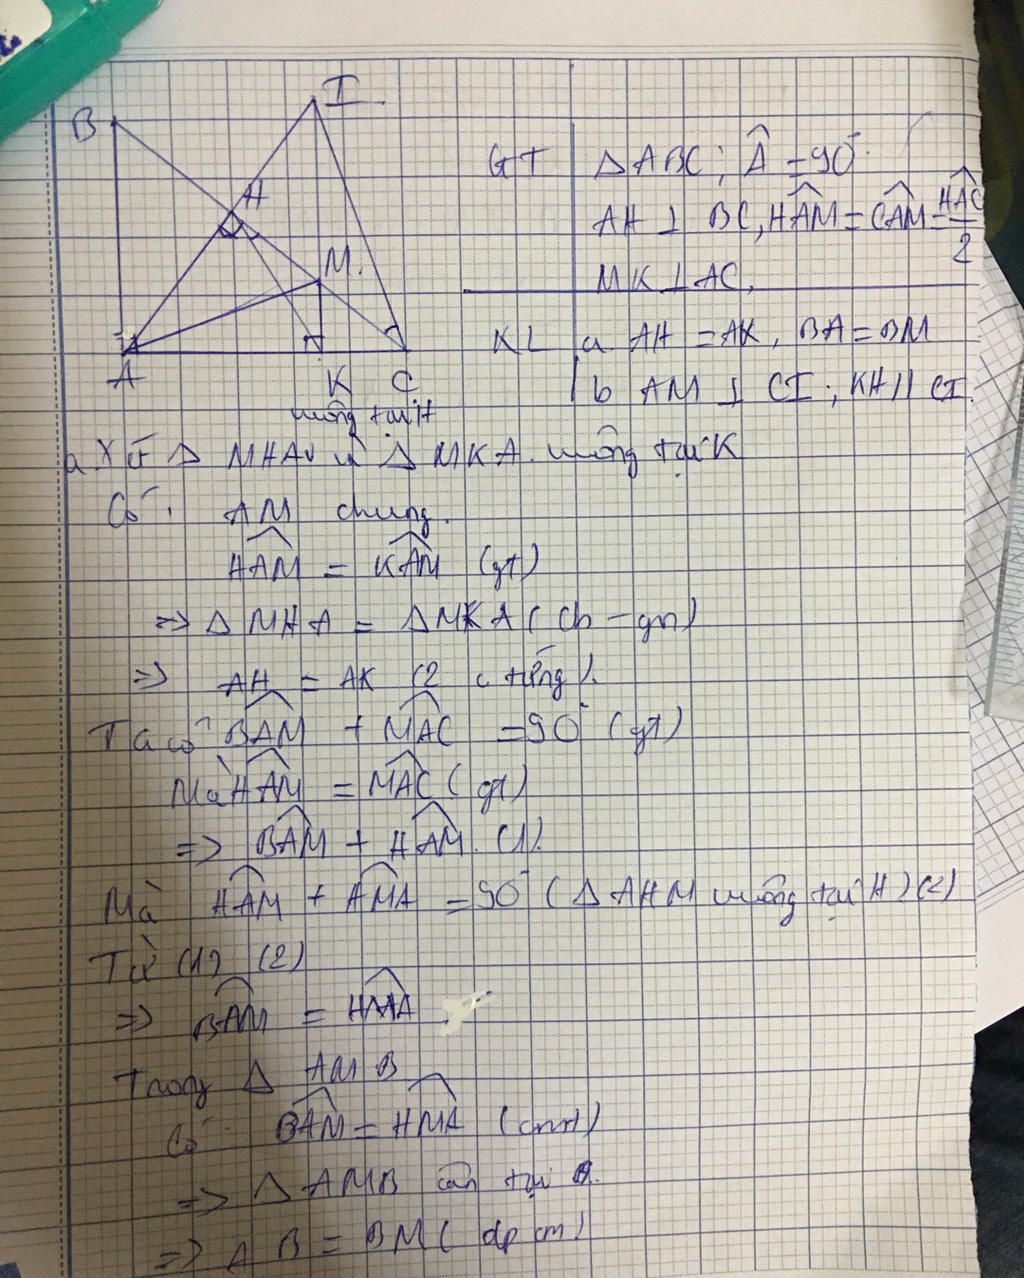 B
I
H
M.
A
K
C
GT ΔABC; Â = 90°.
AH ⊥ BC, HAM^ = CAM^ = HAC^/2
MK ⊥ AC,
KL a AH = AK, BA = BM
b AM ⊥ CI; KH // CI.
vuông tại H
a Xét Δ MHA và Δ MKA. vuông tại K
Có: AM chung.
HAM^ = KAM^ (gt)
=> Δ MHA = Δ MKA (ch - gn)
=> AH = AK (2 c t ứng).
Ta có BAM^ + MAC^ = 90° (gt)
Mà HAM^ = MAC^ (gt)
=> BAM^ + HAM^. (1).
Mà HAM^ + HMA^ = 90° (Δ AHM vuông tại H) (2)
Từ (1) (2)
=> BAM^ = HMA^
Trong Δ AMB
Có BAM^ = HMA^ (cmt)
=> Δ AMB cân tại B.
=> AB = BM (đpcm)